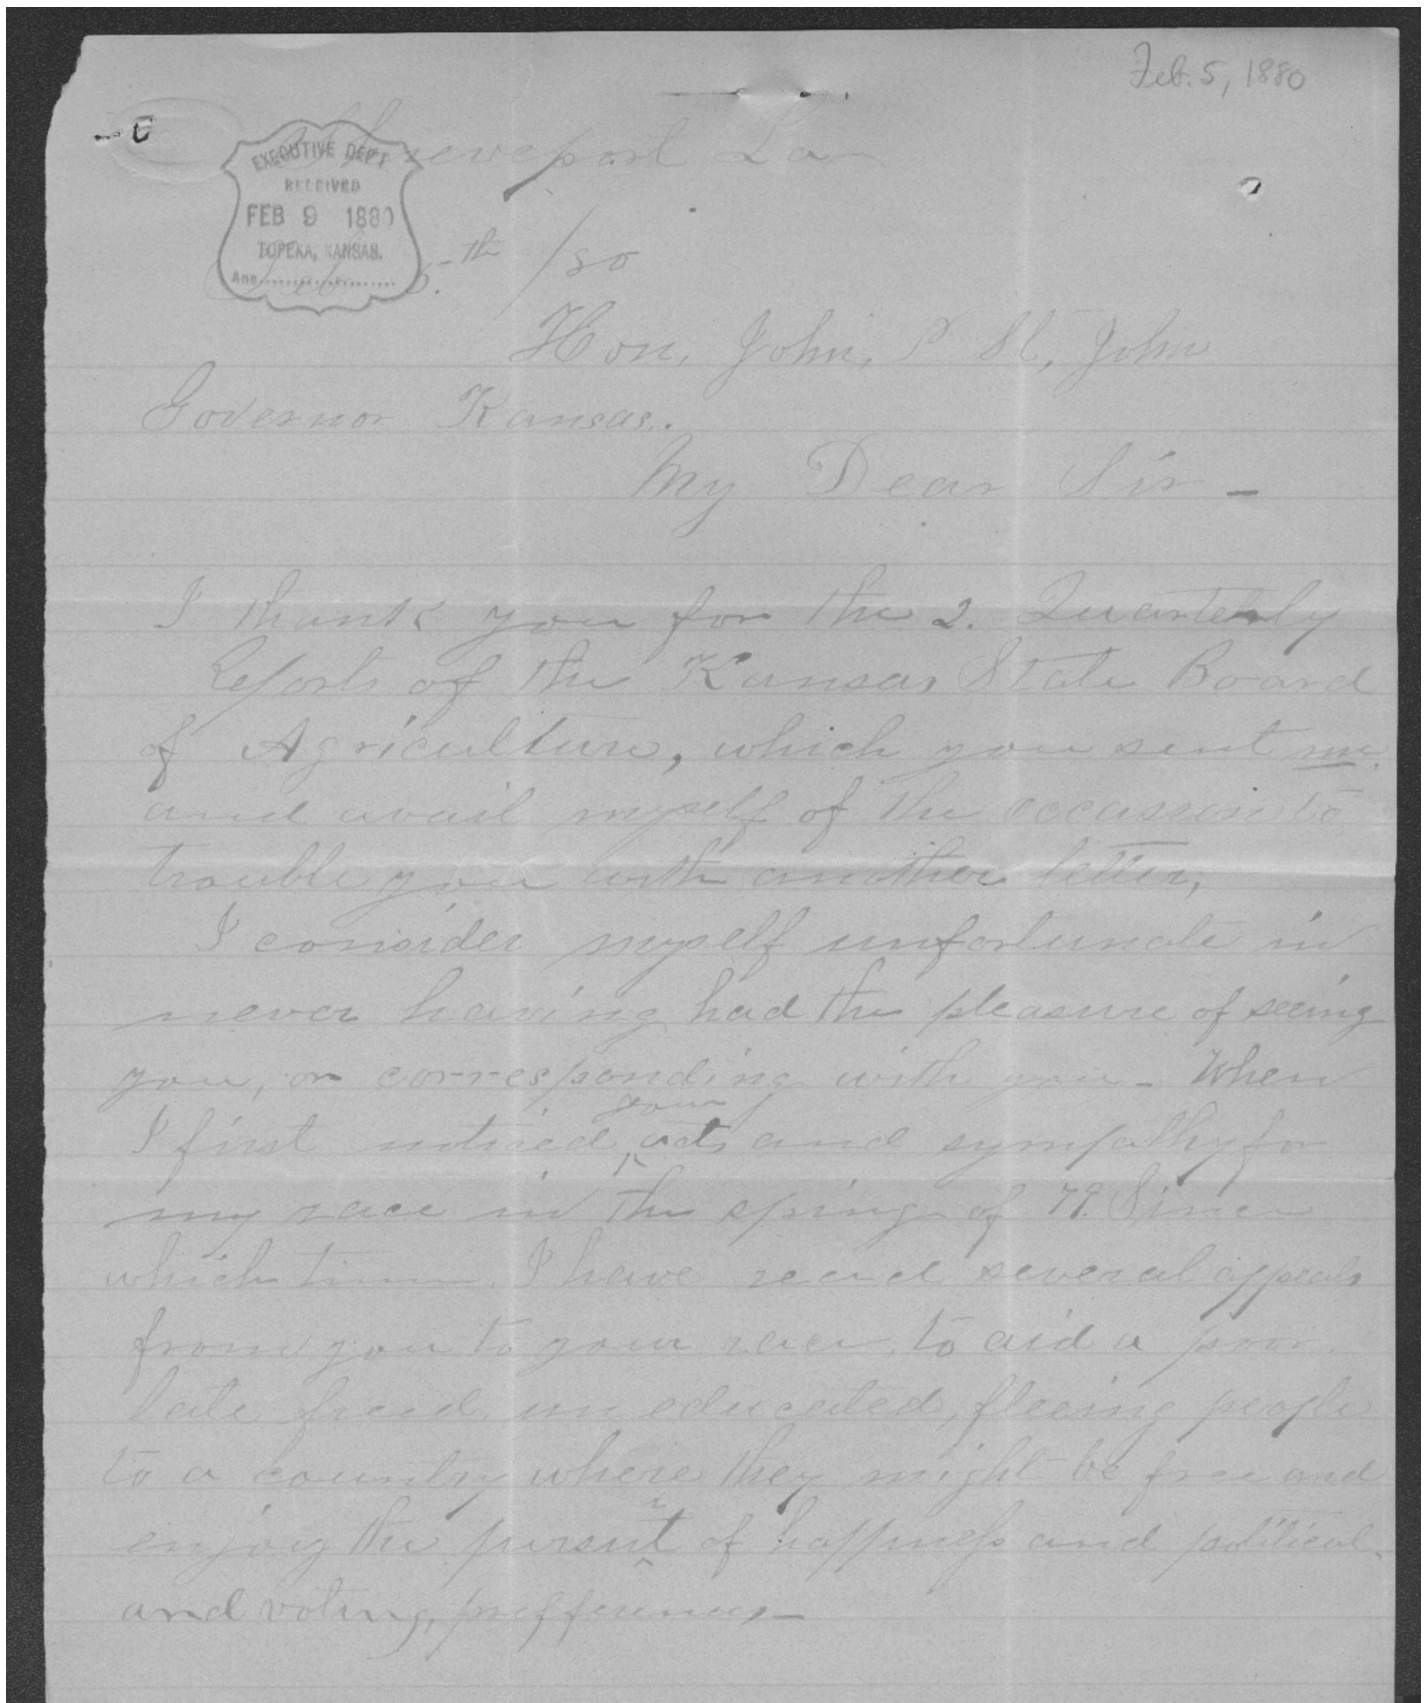 Feb. 5, 1880
Shreveport La
EXECUTIVE DEPT.
RECEIVED
FEB 9 1880
TOPEKA, KANSAS.
Ans
Feb 5th /80
Hon, John, P St, John
Governor Kansas.
My Dear Sir -
I thank you for the 2. Quarterly
Reports of the Kansas State Board
of Agriculture, which you sent me.
and avail myself of the occassion to
trouble you with another letter,
I consider myself unfortunate in
never having had the pleasure of seeing
you, or corresponding with you - When
your
I first noticed ^ acts and sympathy for
my race in the spring of 79. Since
which time I have read several appeals
from you to your race, to aid a poor
late freed, un educated, fleeing people
to a country where they might be free and
enjoy the pursuit of happiness and political
and voting, prefferences -